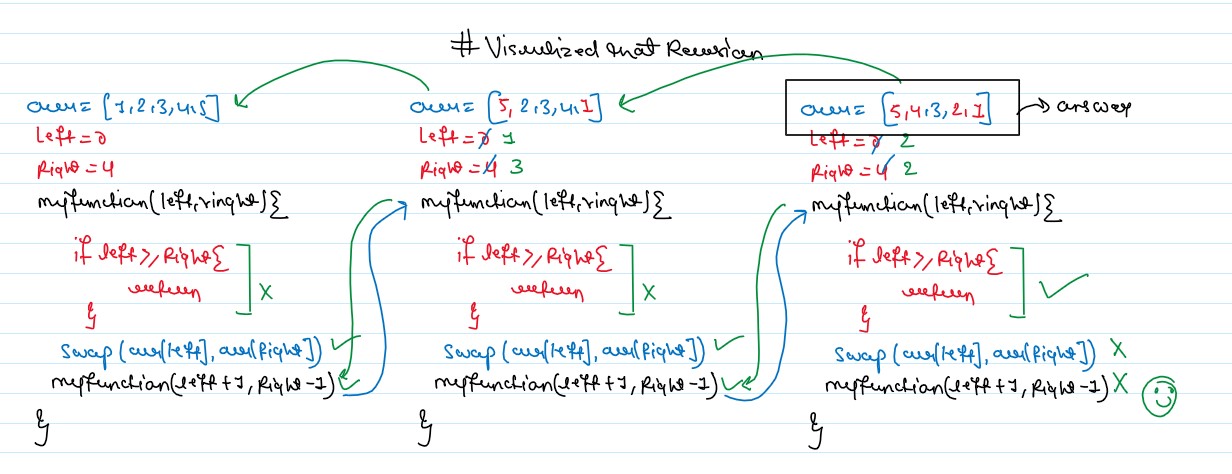 # Visualized that Recursion
arr = [1,2,3,4,5]
left = 0
Right = 4
myfunction(left,ringht){
if left >= Right{
return
}
Swap (arr[left], arr[Right])
myfunction(left+1, Right-1)
}
arr = [5, 2,3,4,1]
left = 0 1
Right = 4 3
myfunction(left,ringht){
if left >= Right{
return
}
Swap (arr[left], arr[Right])
myfunction(left+1, Right-1)
}
arr = [5,4,3,2,1] → answer
left = 0 2
Right = 4 2
myfunction(left,ringht){
if left >= Right{
return
}
Swap (arr[left], arr[Right])
myfunction(left+1, Right-1)
}